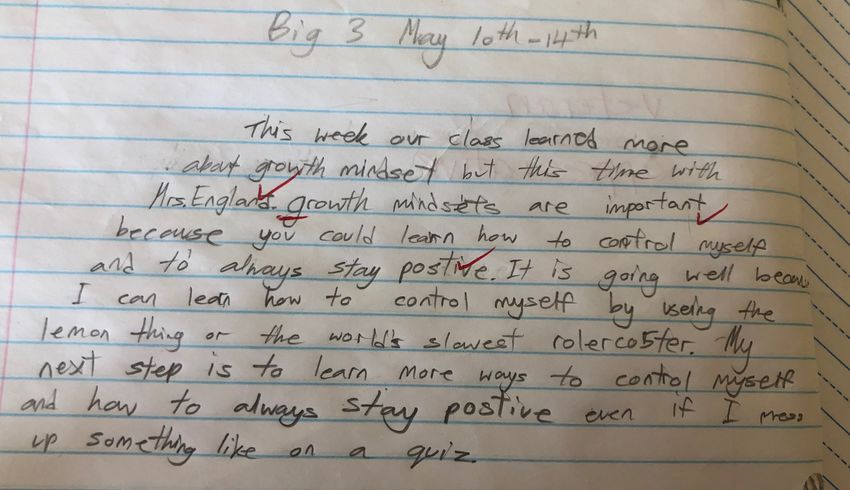 Big 3 May 10th-14th
This week our class learned more
about growth mindset but this time with
Mrs. England. growth mindsets are important
because you could learn how to control myself
and to always stay postive. It is going well becau
I can lean how to control myself by useing the
lemon thing or the world's slowest rolercoster. My
next step is to learn more ways to control myself
and how to always stay postive even if I mess
up something like on a quiz.